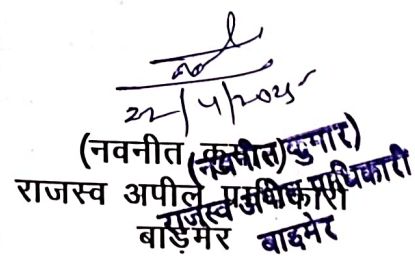 22/4/2025
(नवनीत कुमार)
राजस्व अपील प्राधिकारी
बाड़मेर
(नवनीत कुमार)
राजस्व अपील प्राधिकारी
बाडमेर